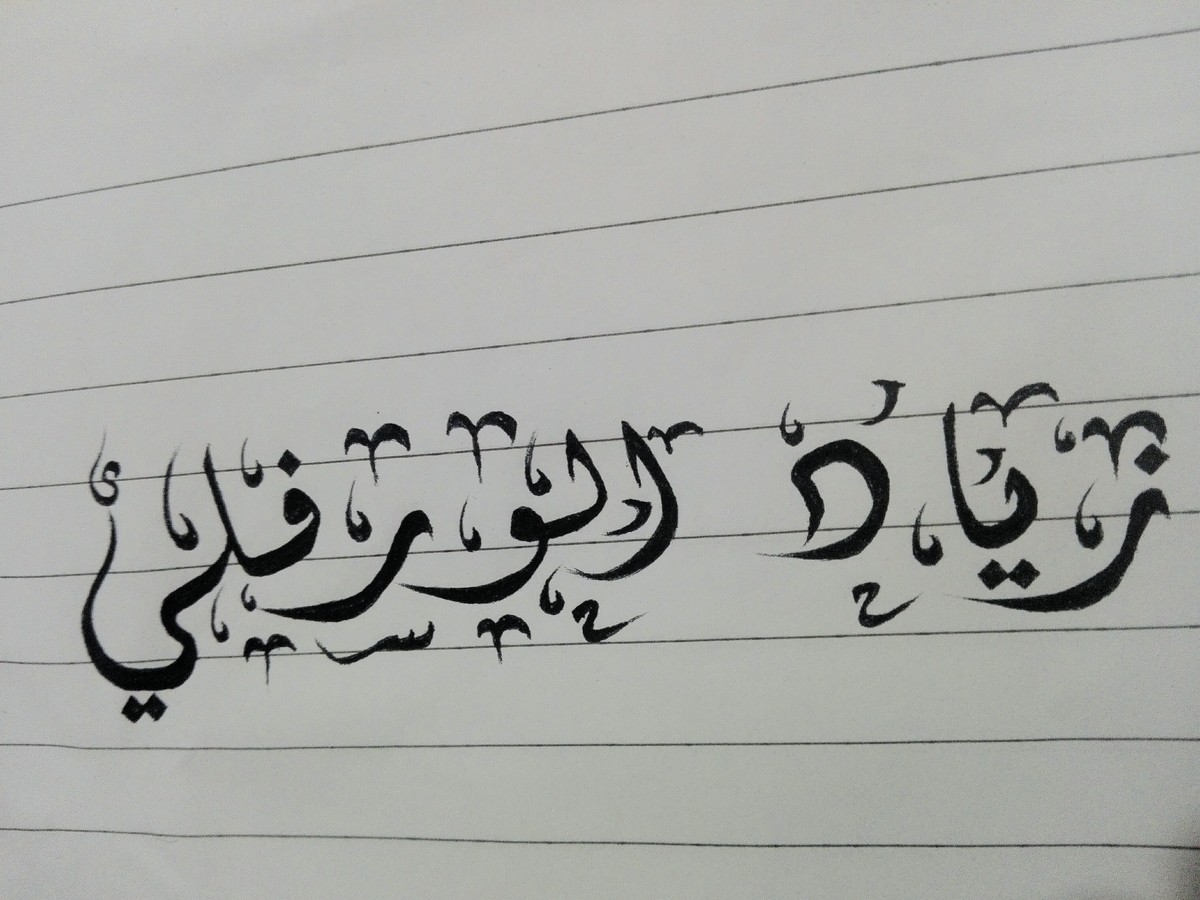 زياد الورفلي